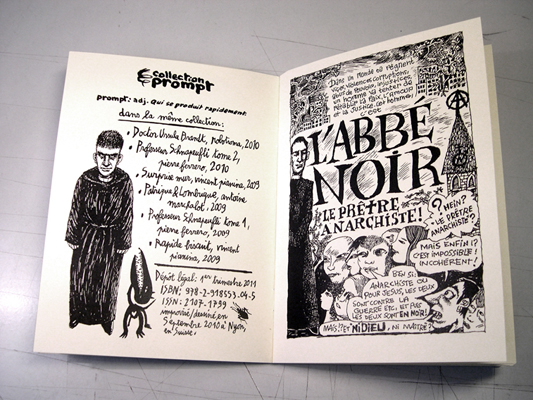 collection
prompt
prompt: adj. Qui se produit rapidement.
dans la même collection:
• Doctor Ursula Brandt, 2010
• Professeur Schnapsfli tome 2,
pierre ferrero, 2010
• Surprise mur, vincent pianina, 2009
• Patrique & Lombrique, antoine
marchalot, 2009
• Professeur Schnapsfli tome 1,
pierre ferrero, 2009
• Rapide biscuit, vincent
pianina, 2009
Dépôt légal: 1er trimestre 2011
ISBN: 978-2-918553-04-5
ISSN: 2107-1799
improvisé/dessiné en
Septembre 2010 à Nyon,
en Suisse.
Dans un monde où règnent
vice, violence, corruptions,
abus de pouvoir, injustices,
un homme va tenter de
rétablir la paix, l'amour
et la justice des hommes,
c'est
L'ABBÉ
NOIR
LE PRÊTRE
ANARCHISTE!
? HEIN?
LE PRÊTRE
ANARCHISTE?
MAIS ENFIN!?
C'EST IMPOSSIBLE!
INCOHÉRENT!
BEN SI:
ANARCHISTE OU
POUR JESUS, LES DEUX
SONT CONTRE LA
GUERRE ETC. ET PUIS
LES DEUX SONT EN NOIR!
MAIS!? ET NI DIEU, NI MAÎTRE?